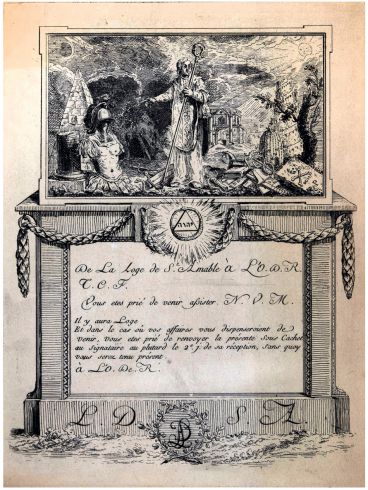 יהוה
De La Loge de S.t Amable à L'O. D. R.
T. C. F.
Vous etes prié de venir assister. N. V. M.
Il y aura Loge
Et dans le cas où vos affaires vous dispenseroient de
venir, vous etes prié de renvoyer la présente Sous Cachet
au Signataire au plûtard le 2.e j. de sa réception, Sans quoy
vous serez tenu présent.
à L'O. De. R.
L D S. A.